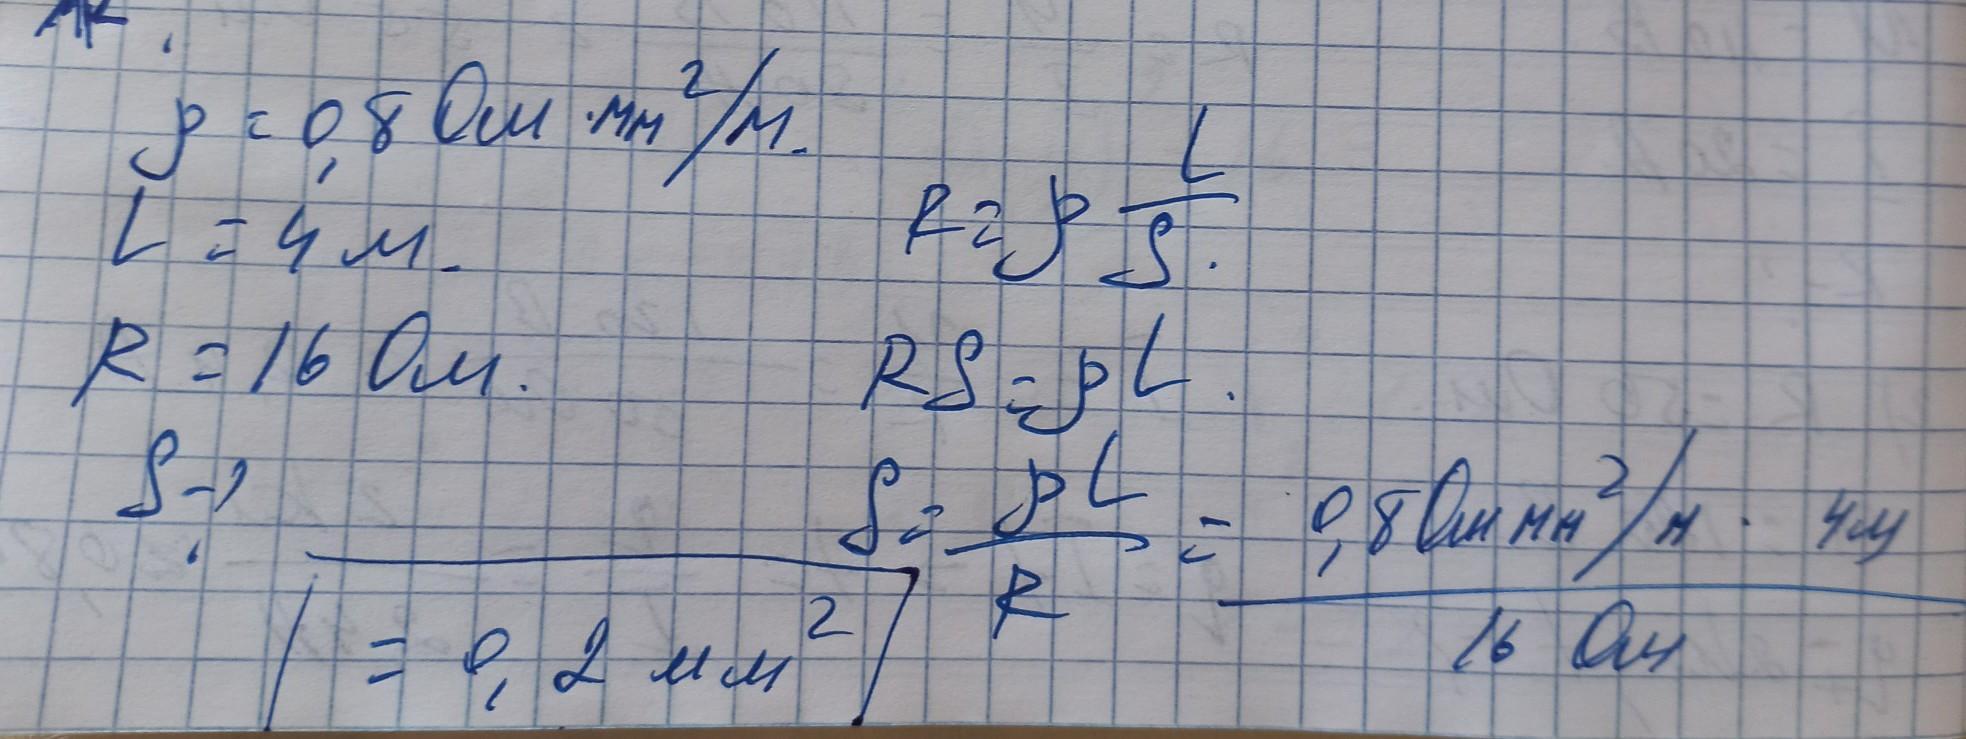 ρ = 0,8 Ом · мм²/м.
L = 4 м.
R = 16 Ом.
S - ?
R = ρ L/S.
RS = ρL.
S = ρL/R = 0,8 Ом мм²/м · 4м / 16 Ом
= 0,2 мм²